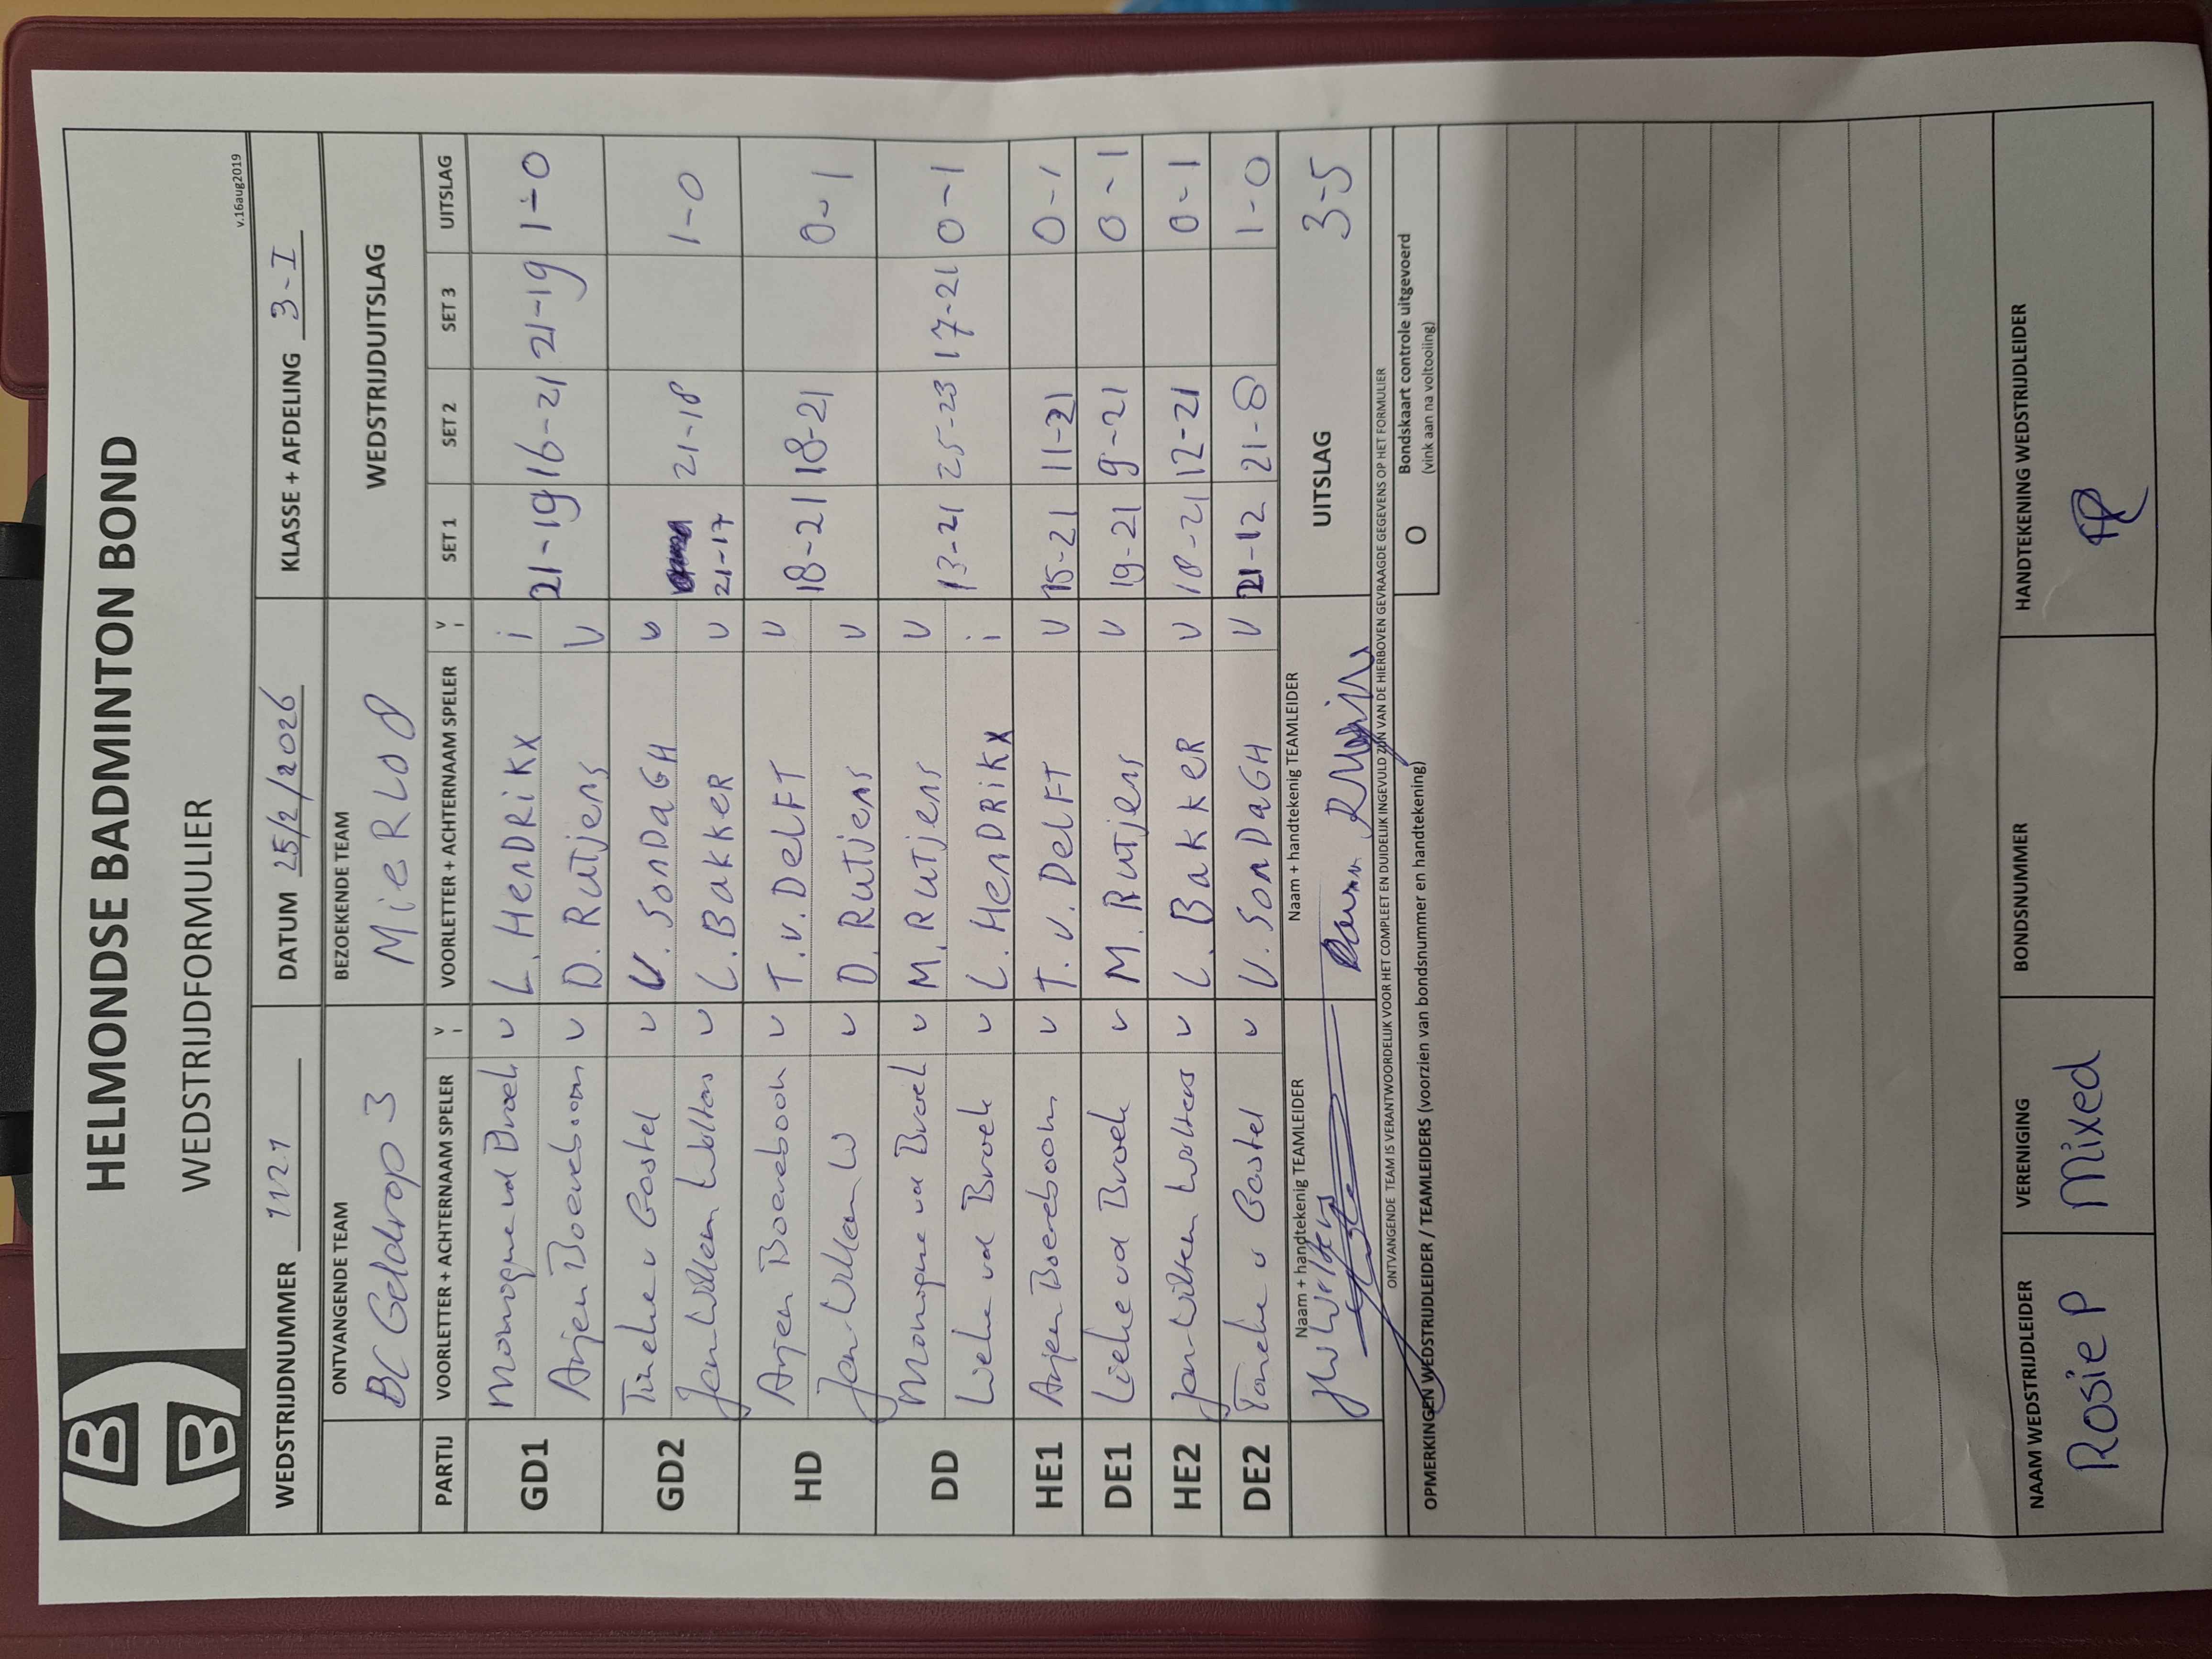 HELMONDSE BADMINTON BOND
WEDSTRIJDFORMULIER
v.16aug2019
WEDSTRIJDNUMMER 1121 DATUM 25/2/2026 KLASSE + AFDELING 3-I
ONTVANGENDE TEAM BEZOEKENDE TEAM WEDSTRIJDUITSLAG
BC Geldrop 3 MieRLo 8
PARTIJ VOORLETTER + ACHTERNAAM SPELER v i VOORLETTER + ACHTERNAAM SPELER v i SET 1 SET 2 SET 3 UITSLAG
GD1 Monique vd Broek v L. HenDRiKx i 21-19 16-21 21-19 1-0
Arjen Boereboom v D. RuTjens v
GD2 Tineke v Gastel v V. SonDaGH v 21-18 1-0
Jan Willem Wolters v L. BakkeR v 21-17
HD Arjen Boereboom v T. v. DelFT v 18-21 18-21 0-1
Jan-Willem W v D. RuTjens v
DD Monique vd Broek v M. RuTjens v 13-21 25-23 17-21 0-1
Lieke vd Broek v L. HenDRiKx i
HE1 Arjen Boereboom v T. v. DelFT v 15-21 11-21 0-1
DE1 Lieke vd Broek v M. RuTjens v 19-21 9-21 0-1
HE2 Jan-Willem Wolters v L. BakkeR v 18-21 12-21 0-1
DE2 Tineke v Gastel v V. SonDaGH v 21-12 21-8 1-0
Naam + handtekenig TEAMLEIDER Naam + handtekenig TEAMLEIDER UITSLAG 3-5
ONTVANGENDE TEAM IS VERANTWOORDELIJK VOOR HET COMPLEET EN DUIDELIJK INGEVULD ZIJN VAN DE HIERBOVEN GEVRAAGDE GEGEVENS OP HET FORMULIER
OPMERKINGEN WEDSTRIJDLEIDER / TEAMLEIDERS (voorzien van bondsnummer en handtekening) O Bondskaart controle uitgevoerd
(vink aan na voltooiing)
NAAM WEDSTRIJDLEIDER VERENIGING BONDSNUMMER HANDTEKENING WEDSTRIJDLEIDER
Rosie P Mixed